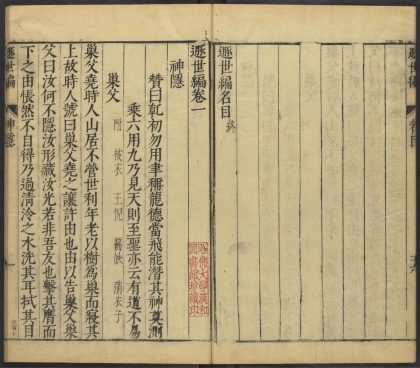 遯世編名目終
哈佛大學漢和
圖書館珍藏印
遯世編卷一
神隱
贊曰乹初勿用聿稱龍德當飛能潛其神莫測
乘六用九乃見天則至聖亦云有道不易
巢父
附 被衣 王倪 齧缺 蒲衣子
巢父堯時人山居不營世利年老以樹爲巢而寢其
上故時人號曰巢父堯之讓許由也由以告巢父巢
父曰汝何不隱汝形藏汝光若非吾友也擊其膺而
下之由悵然不自得乃過清泠之水洗其耳拭其目
遯世編 神隱 一